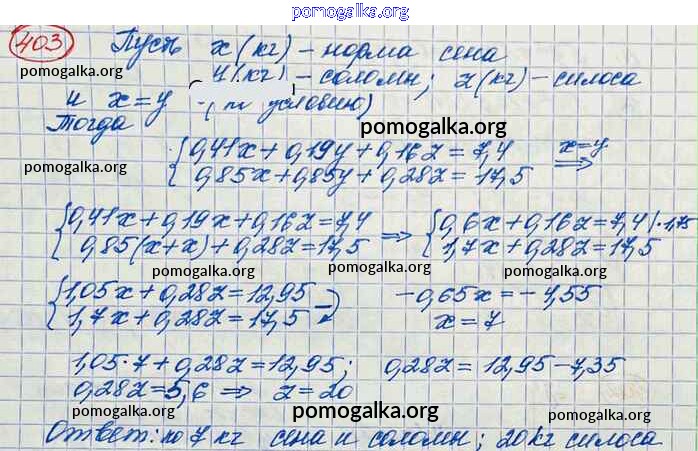 pomogalka.org
403 Пусть x (кг) - норма сена
pomogalka.org y (кг) - соломы; z (кг) - силоса
и x = y - (по условию)
Тогда pomogalka.org
{0,41x + 0,19y + 0,16z = 7,4 x=y
pomogalka.org {0,85x + 0,85y + 0,28z = 17,5 ⇒
{0,41x + 0,19x + 0,16z = 7,4 ⇒ {0,6x + 0,16z = 7,4 | ·1,75
{0,85(x+x) + 0,28z = 17,5 {1,7x + 0,28z = 17,5
pomogalka.org pomogalka.org pomogalka.org
{1,05x + 0,28z = 12,95 -0,65x = -4,55
{1,7x + 0,28z = 17,5 x = 7
1,05·7 + 0,28z = 12,95; 0,28z = 12,95 - 7,35
0,28z = 5,6 ⇒ z = 20
pomogalka.org pomogalka.org
Ответ: по 7 кг сена и соломы; 20 кг силоса
pomogalka.org